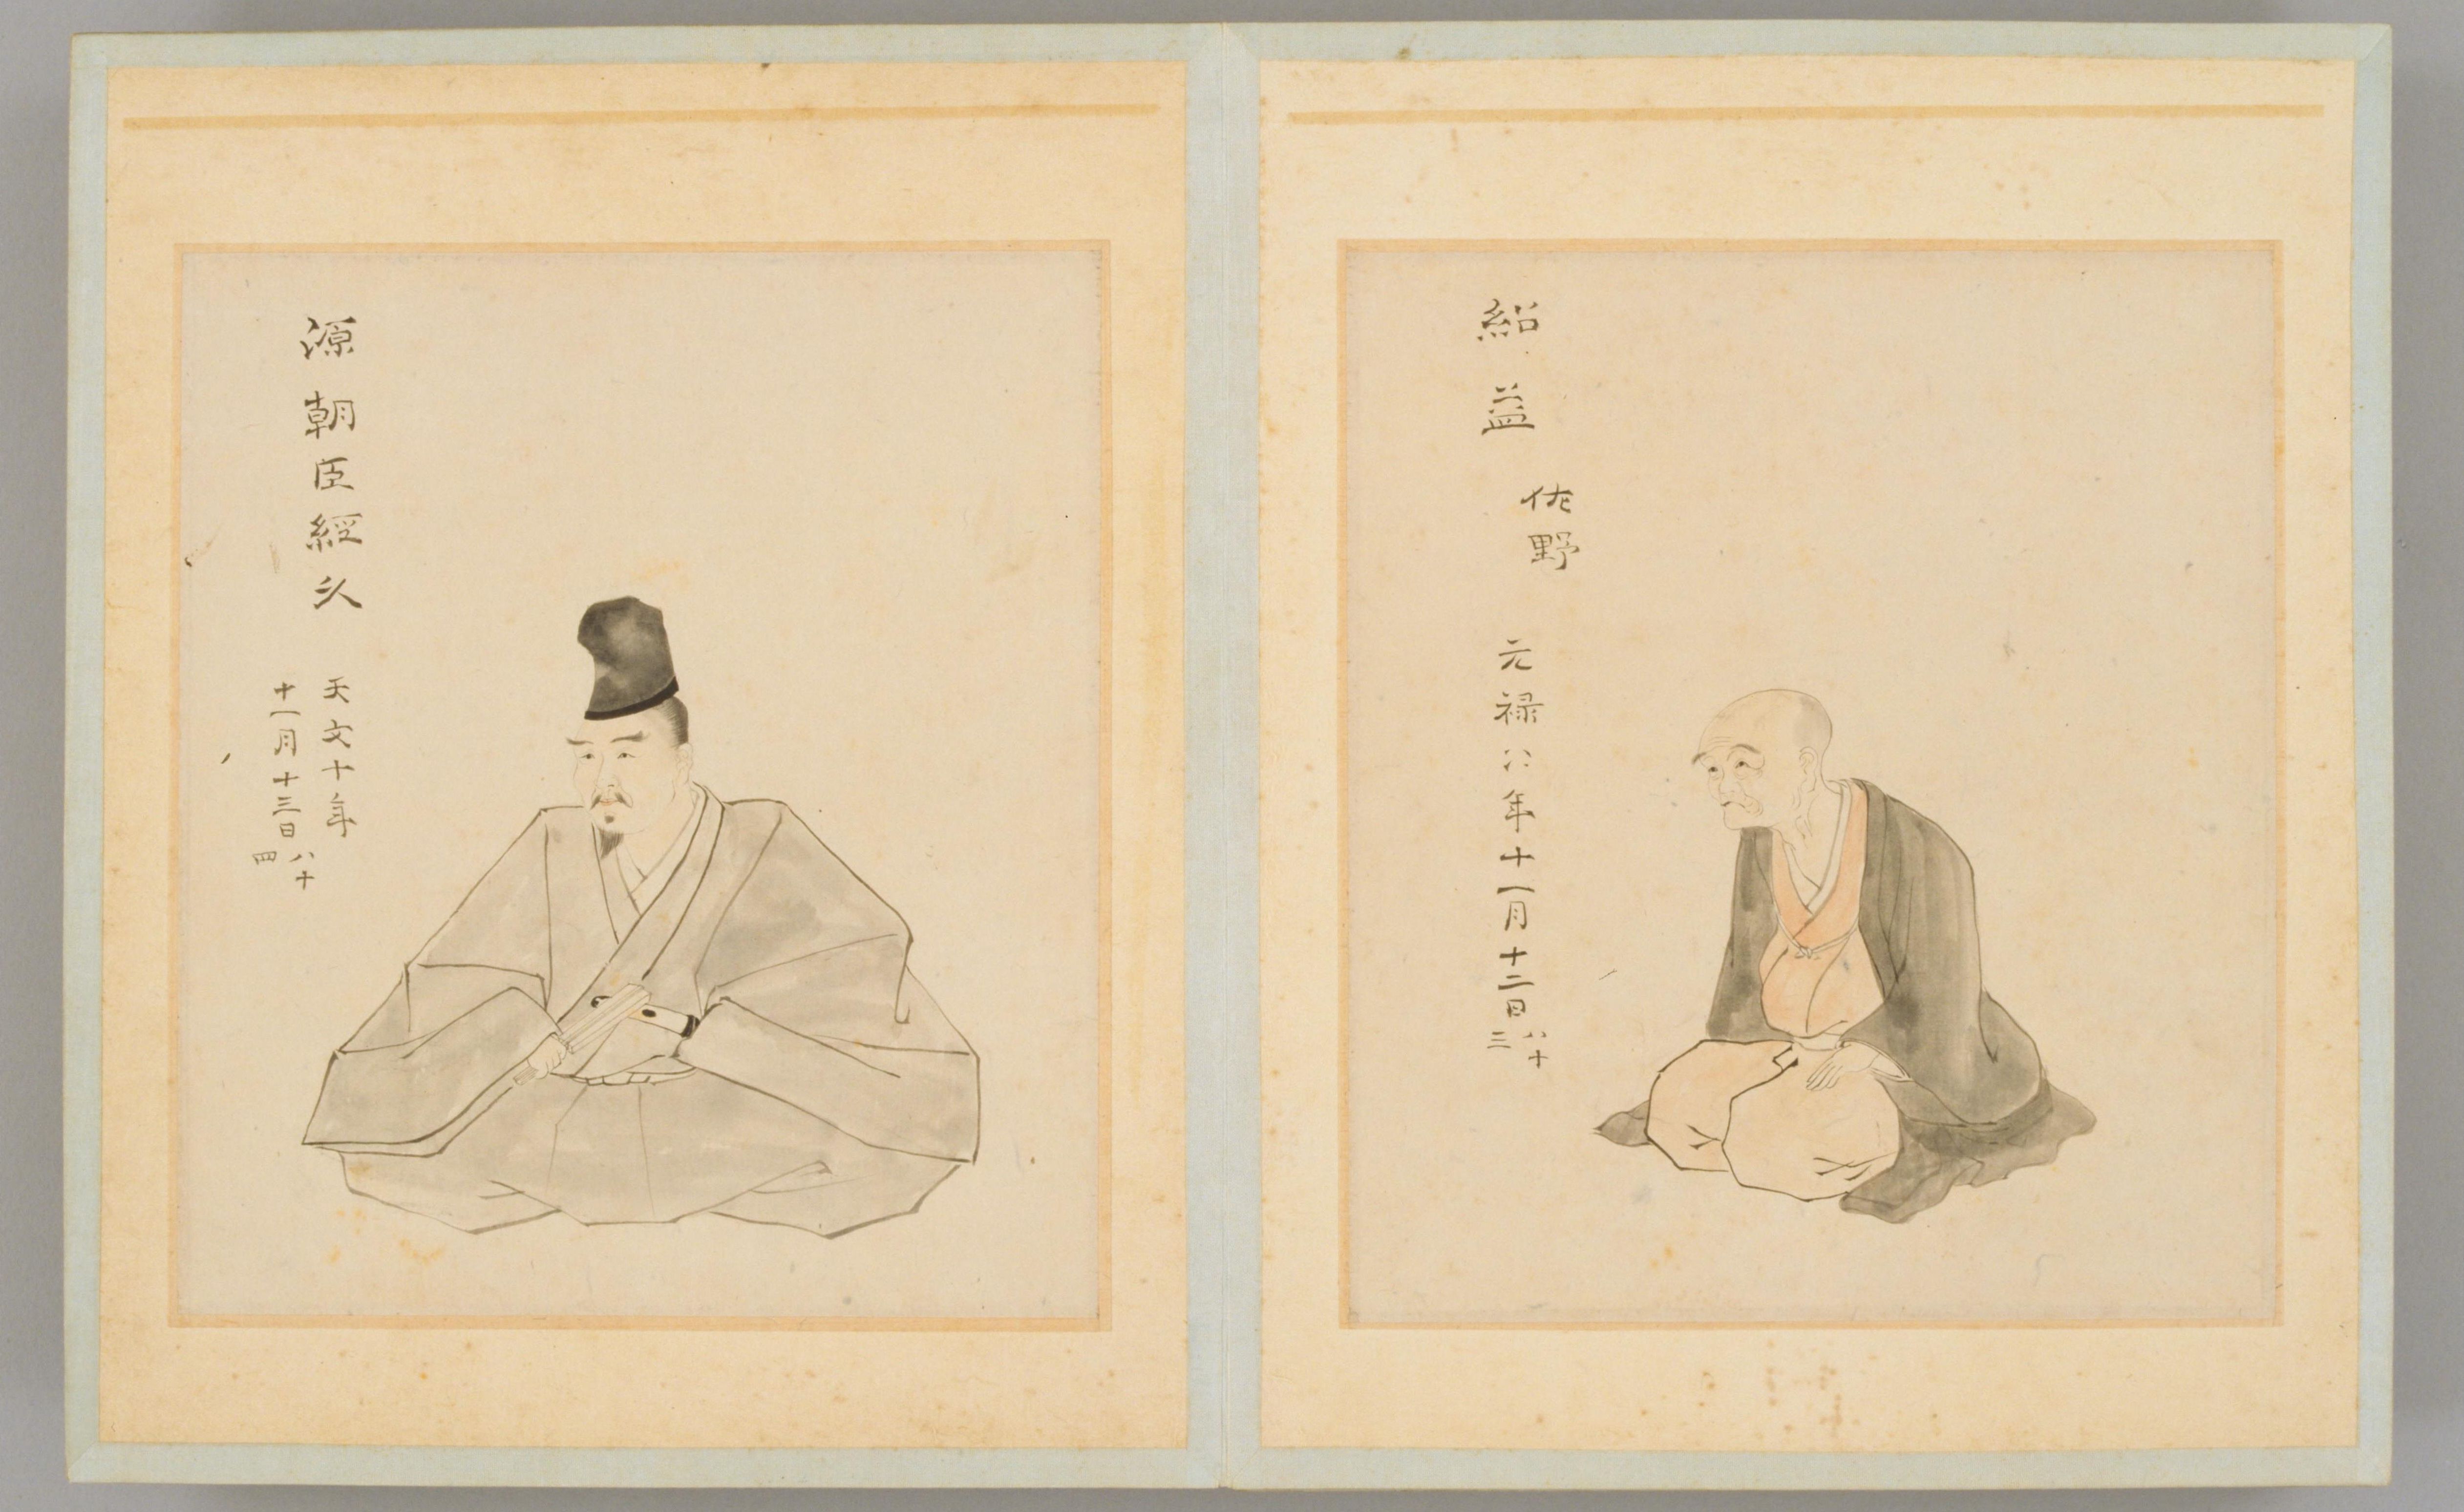 紹益
佐野
元禄八年十一月十二日
八十
三
源朝臣經久
天文十年
十一月十三日
八十
四